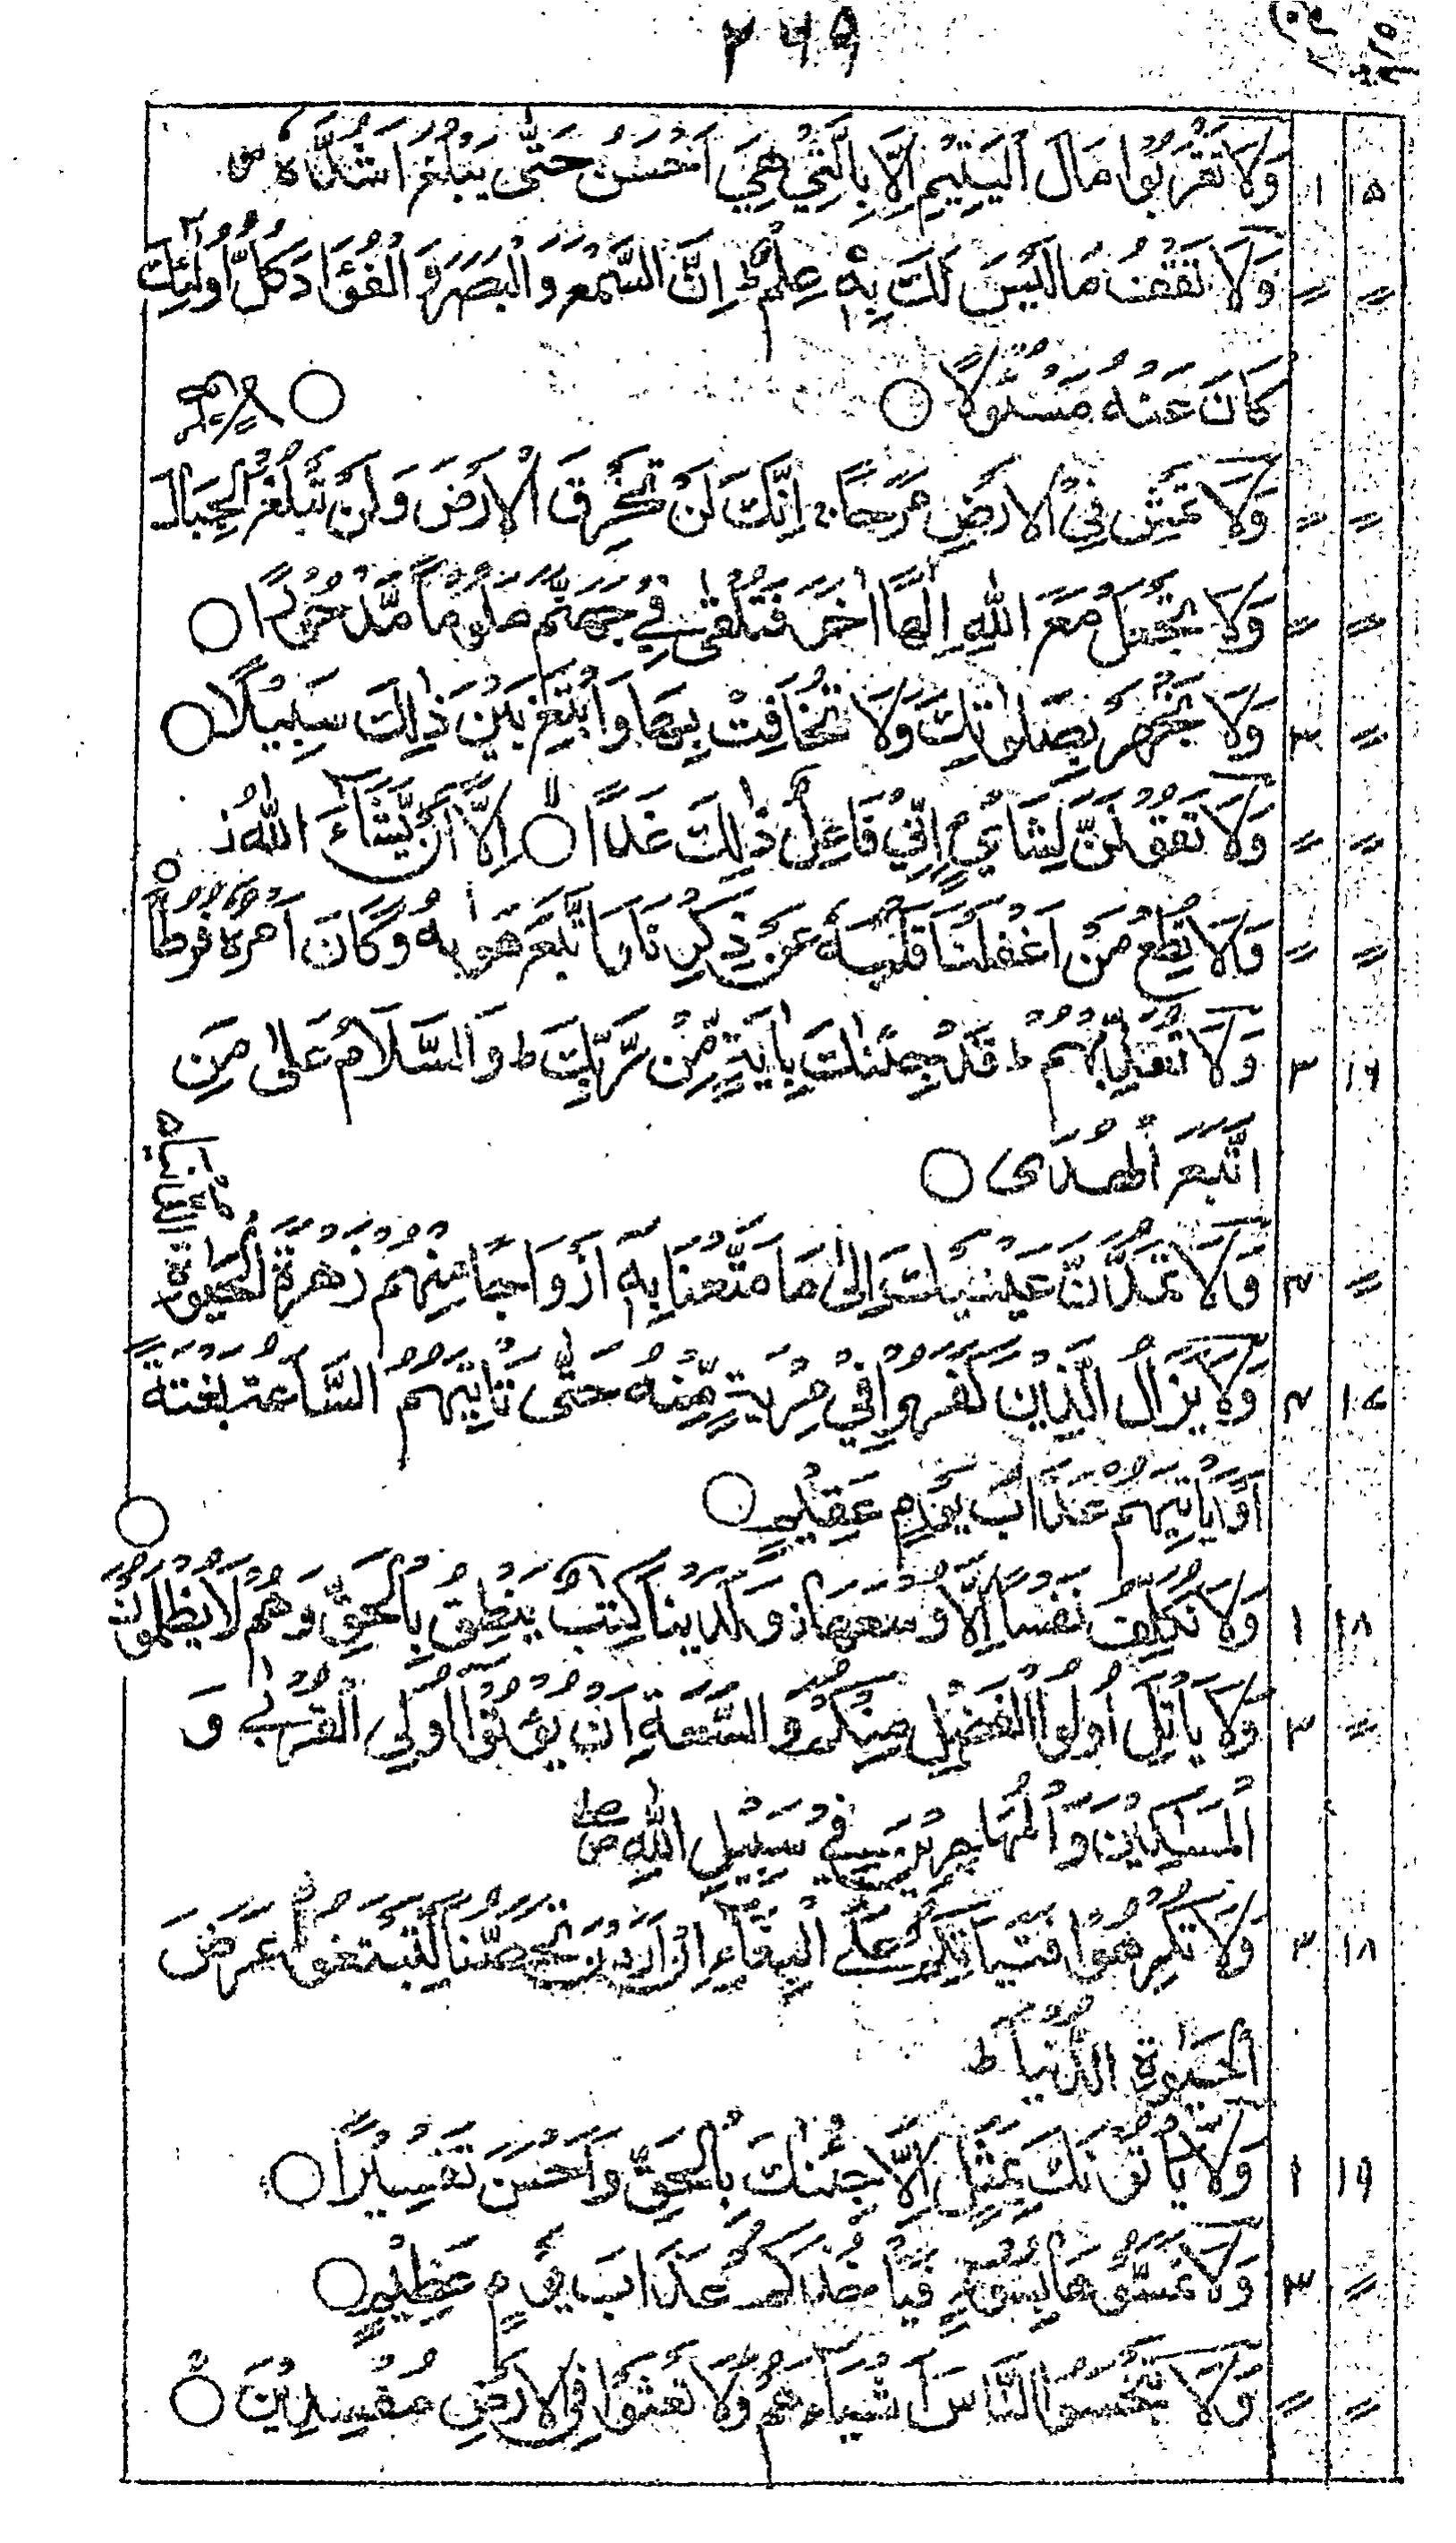 ۲۶۹
۱۵ ۱ وَلَا تَقْرَبُوا مَالَ الْيَتِيْمِ اِلَّا بِالَّتِيْ هِيَ اَحْسَنُ حَتّٰى يَبْلُغَ اَشُدَّهٗ ص
〃 〃 وَلَا تَقْفُ مَا لَيْسَ لَكَ بِهٖ عِلْمٌ ط اِنَّ السَّمْعَ وَالْبَصَرَ وَالْفُؤَادَ كُلُّ اُولٰٓئِكَ
كَانَ عَنْهُ مَسْئُوْلًا ○ ○
〃 〃 وَلَا تَمْشِ فِي الْاَرْضِ مَرَحًا ج اِنَّكَ لَنْ تَخْرِقَ الْاَرْضَ وَلَنْ تَبْلُغَ الْجِبَالَ
〃 〃 وَلَا تَجْعَلْ مَعَ اللّٰهِ اِلٰهًا اٰخَرَ فَتُلْقٰى فِيْ جَهَنَّمَ مَلُوْمًا مَّدْحُوْرًا ○
〃 ۳ وَلَا تَجْهَرْ بِصَلٰوتِكَ وَلَا تُخَافِتْ بِهَا وَابْتَغِ بَيْنَ ذٰلِكَ سَبِيْلًا ○
〃 〃 وَلَا تَقُوْلَنَّ لِشَايْءٍ اِنِّيْ فَاعِلٌ ذٰلِكَ غَدًا ○ اِلَّا اَنْ يَّشَآءَ اللّٰهُ ز
〃 〃 وَلَا تُطِعْ مَنْ اَغْفَلْنَا قَلْبَهٗ عَنْ ذِكْرِنَا وَاتَّبَعَ هَوٰىهُ وَكَانَ اَمْرُهٗ فُرُطًا ○
۱۶ ۳ وَلَا تُعَذِّبْهُمْ ط قَدْ جِئْنٰكَ بِاٰيَةٍ مِّنْ رَّبِّكَ ط وَالسَّلَامُ عَلٰى مَنِ
اتَّبَعَ الْهُدٰى ○
〃 ۴ وَلَا تَمُدَّنَّ عَيْنَيْكَ اِلٰى مَا مَتَّعْنَا بِهٖ اَزْوَاجًا مِنْهُمْ زَهْرَةَ الْحَيٰوةِ
۱۷ ۴ وَلَا يَزَالُ الَّذِيْنَ كَفَرُوْا فِيْ مِرْيَةٍ مِّنْهُ حَتّٰى تَاْتِيَهُمُ السَّاعَةُ بَغْتَةً
اَوْ يَاْتِيَهُمْ عَذَابُ يَوْمٍ عَقِيْمٍ ○
۱۸ ۱ وَلَا نُكَلِّفُ نَفْسًا اِلَّا وُسْعَهَا وَلَدَيْنَا كِتٰبٌ يَنْطِقُ بِالْحَقِّ وَهُمْ لَا يُظْلَمُوْنَ ○
〃 ۳ وَلَا يَاْتَلِ اُولُوا الْفَضْلِ مِنْكُمْ وَالسَّعَةِ اَنْ يُؤْتُوْا اُولِى الْقُرْبٰى وَ
الْمَسٰكِيْنَ وَالْمُهَاجِرِيْنَ فِيْ سَبِيْلِ اللّٰهِ
۱۸ ۳ وَلَا تُكْرِهُوْا فَتَيَاتِكُمْ عَلَى الْبِغَآءِ اِنْ اَرَدْنَ تَحَصُّنًا لِّتَبْتَغُوْا عَرَضَ
الْحَيٰوةِ الدُّنْيَا ط
۱۹ ۱ وَلَا يَاْتُوْنَكَ بِمَثَلٍ اِلَّا جِئْنٰكَ بِالْحَقِّ وَاَحْسَنَ تَفْسِيْرًا ○
〃 ۳ وَلَا تَمَسُّوْهَا بِسُوْءٍ فَيَاْخُذَكُمْ عَذَابُ يَوْمٍ عَظِيْمٍ ○
〃 〃 وَلَا تَبْخَسُوا النَّاسَ اَشْيَآءَهُمْ وَلَا تَعْثَوْا فِى الْاَرْضِ مُفْسِدِيْنَ ○